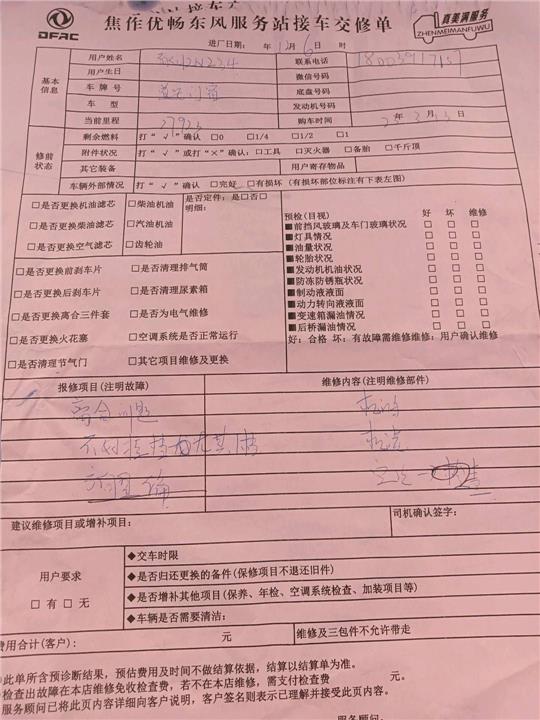 焦作优畅东风服务站接车交修单
DFAC
真美满服务
ZHENMEIMANFUWU
进厂日期: 年 12月 6日 时
基本信息
用户姓名
联系电话
用户生日
微信号码
车 牌 号
底盘号码
车 型
发动机号码
当前里程 27923
购车时间
修前状态
剩余燃料 打“√”确认 □0 □1/4 □1/2 □1
附件状况 打“√”或打“×”确认:□工具 □灭火器 □备胎 □千斤顶
其它装备
用户寄存物品
车辆外部情况 打“√”确认 □完好 □有损坏(有损坏部位标注有下表左图)
□是否更换机油滤芯 □柴油机油
是否定件:是□否□
明细:
□是否更换柴油滤芯 □汽油机油
□是否更换空气滤芯 □齿轮油
预检(目视) 好 坏 维修
■前挡风玻璃及车门玻璃状况 □ □ □
■灯具情况 □ □ □
■油量状况 □ □ □
■轮胎状况 □ □ □
■发动机机油状况 □ □ □
■防冻防锈瓶状况 □ □ □
■制动液液面 □ □ □
■动力转向液液面 □ □ □
■变速箱漏油情况 □ □ □
■后桥漏油情况 □ □ □
好:合格 坏:有故障需维修维修:用户确认维修
□是否更换前刹车片 □是否清理排气筒
□是否更换后刹车片 □是否清理尿素箱
□是否更换离合三件套 □是否为电气维修
□是否更换火花塞 □空调系统是否正常运行
□是否清理节气门 □其它项目维修及更换
报修项目(注明故障)
维修内容(注明维修部件)
离合问题
建议维修项目或增补项目:
司机确认签字:
用户要求
□有 □无
◆交车时限
◆是否归还更换的备件(保修项目不退还旧件)
◆是否增补其他项目(保养、年检、空调系统检查、加装项目等)
◆车辆是否需要清洁:
费用合计(客户): 元
维修及三包件不允许带走
此单所含预诊断结果,预估费用及时间不做结算依据,结算以结算单为准。
检查出故障在本店维修免收检查费,若不在本店维修,需支付检查费 元。
服务顾问已将此页内容详细向客户说明,客户签名则表示已理解并接受此页内容。
服务顾问: